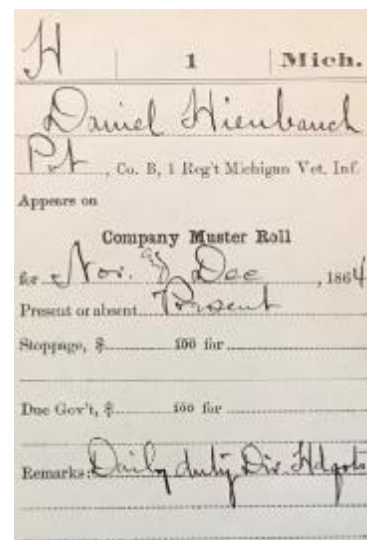 H 1 Mich.
Daniel Hienbauch
Pt, Co. B, 1 Reg't Michigan Vet. Inf.
Appears on
Company Muster Roll
for Nov. & Dec, 1864
Present or absent Present
Stoppage, $ 100 for
Due Gov't, $ 100 for
Remarks: Daily duty Div. Hdqrts